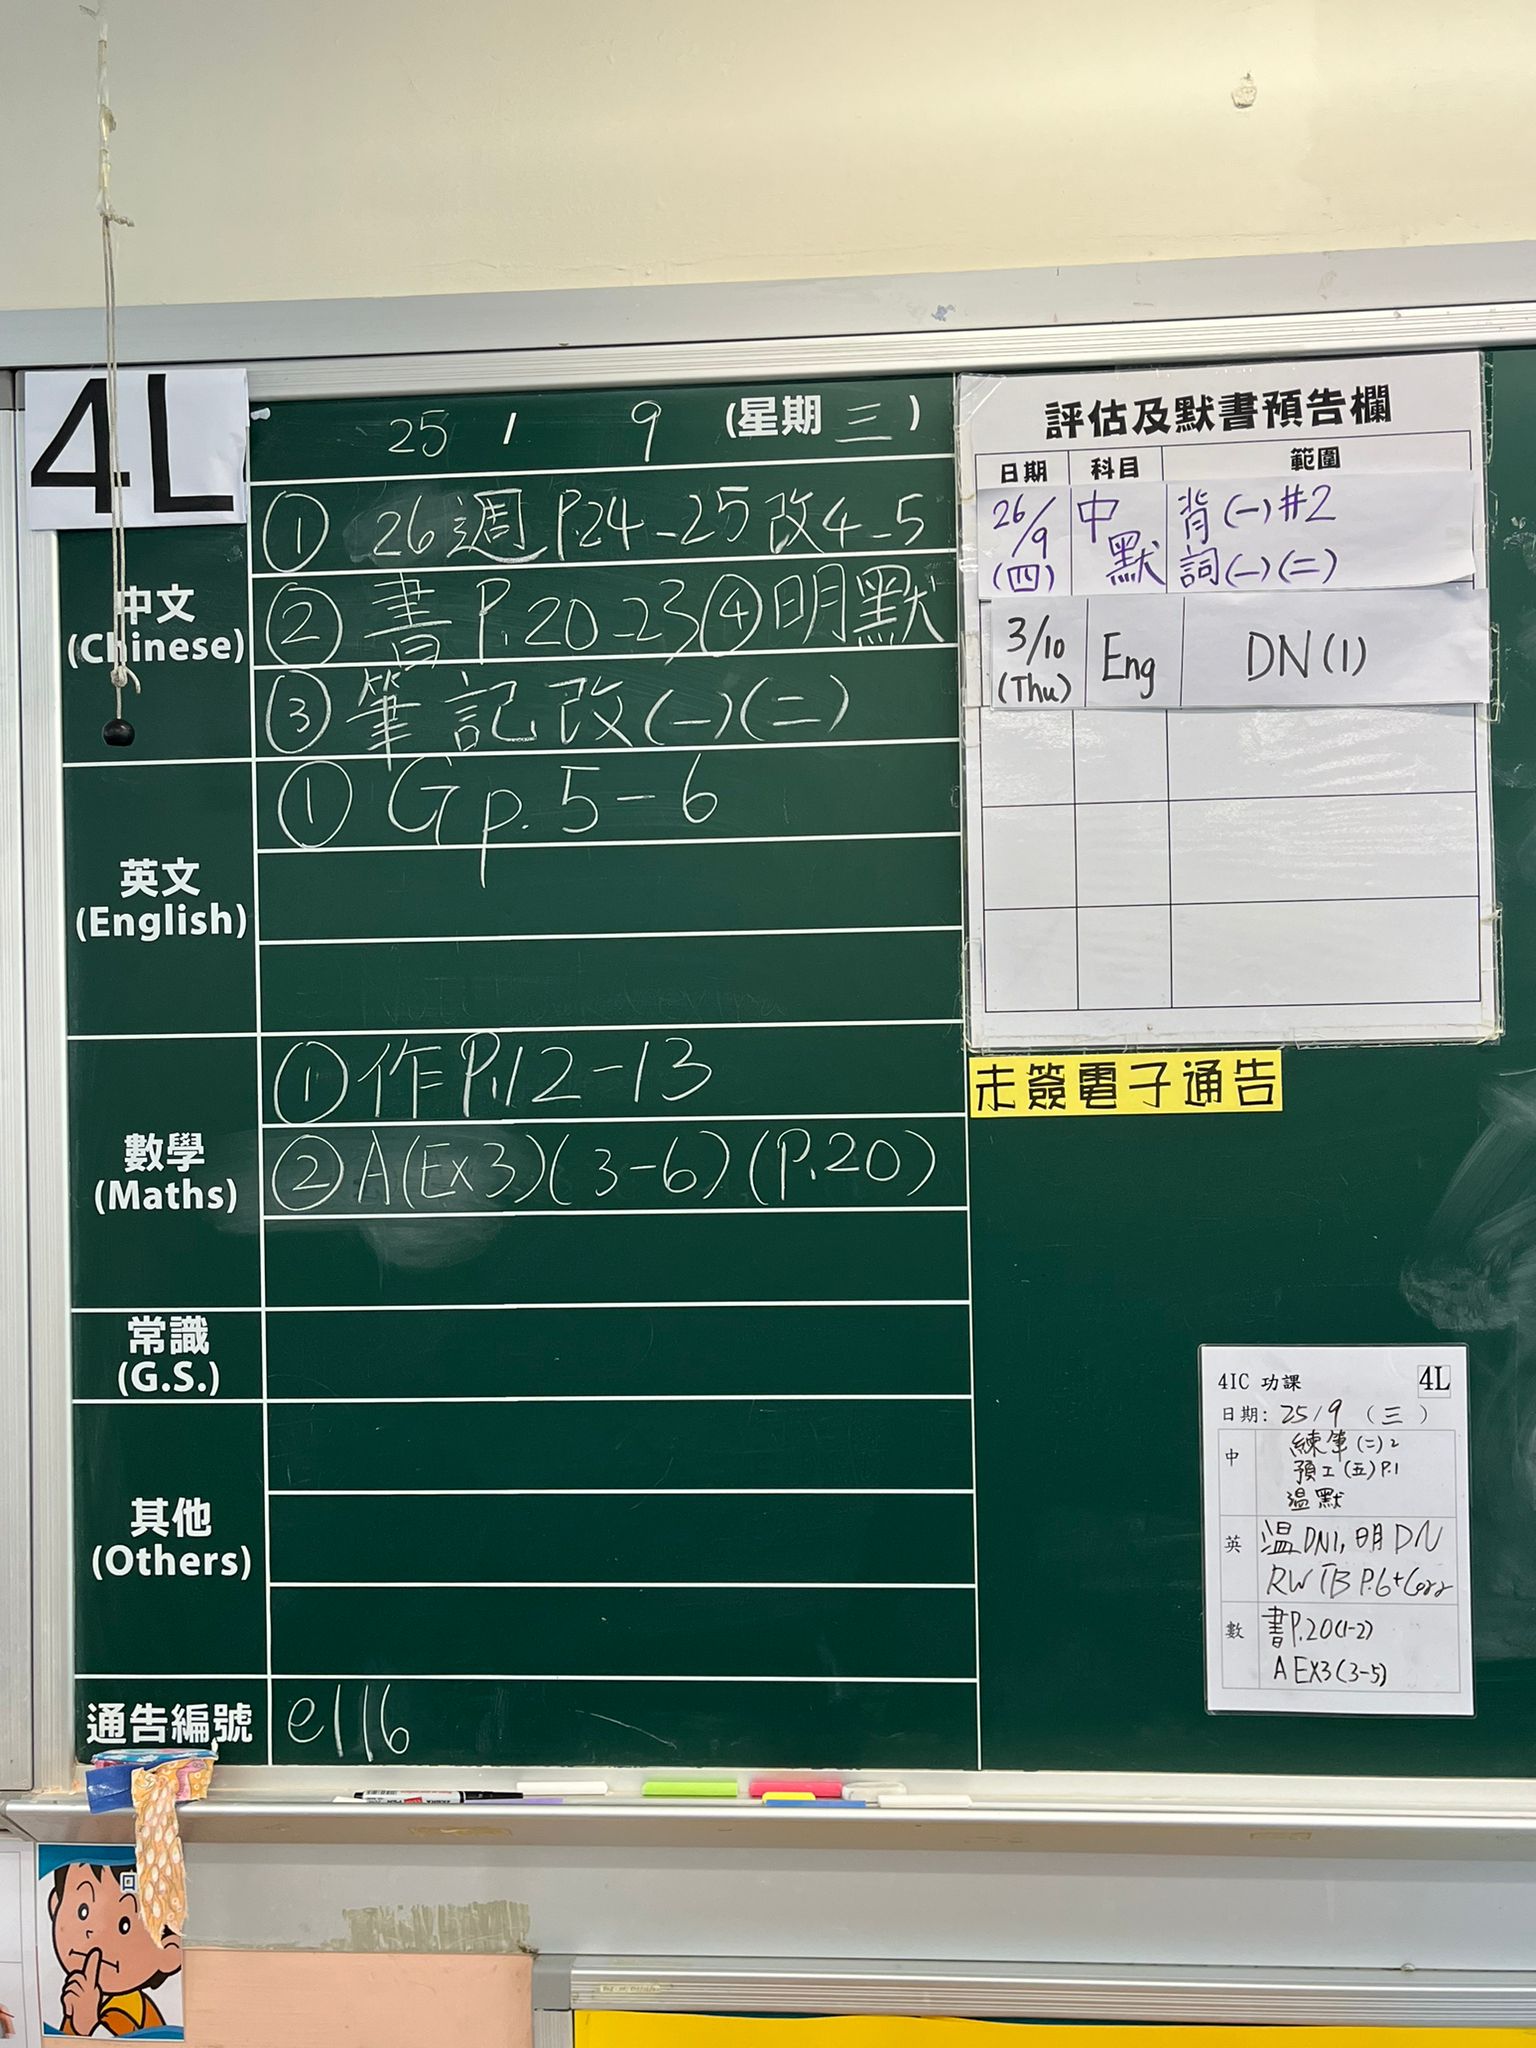 4L
25 / 9 (星期三)
中文
(Chinese)
① 26週 P.24-25 改4-5
② 書 P.20-23 ④明默
③ 筆記改(一)(二)
英文
(English)
① G p.5-6
數學
(Maths)
① 作 P.12-13
② A(Ex3)(3-6)(P.20)
常識
(G.S.)
其他
(Others)
通告編號
e116
評估及默書預告欄
日期 科目 範圍
26/9 (四) 中默 背(一)#2
詞(一)(二)
3/10 (Thu) Eng DN(1)
未簽電子通告
4IC 功課 4L
日期: 25/9 (三)
中 練筆(二)2
預工(五)P.1
溫默
英 溫DN1, 明DN
RW TB P.6+Corr
數 書P.20(1-2)
A EX3(3-5)